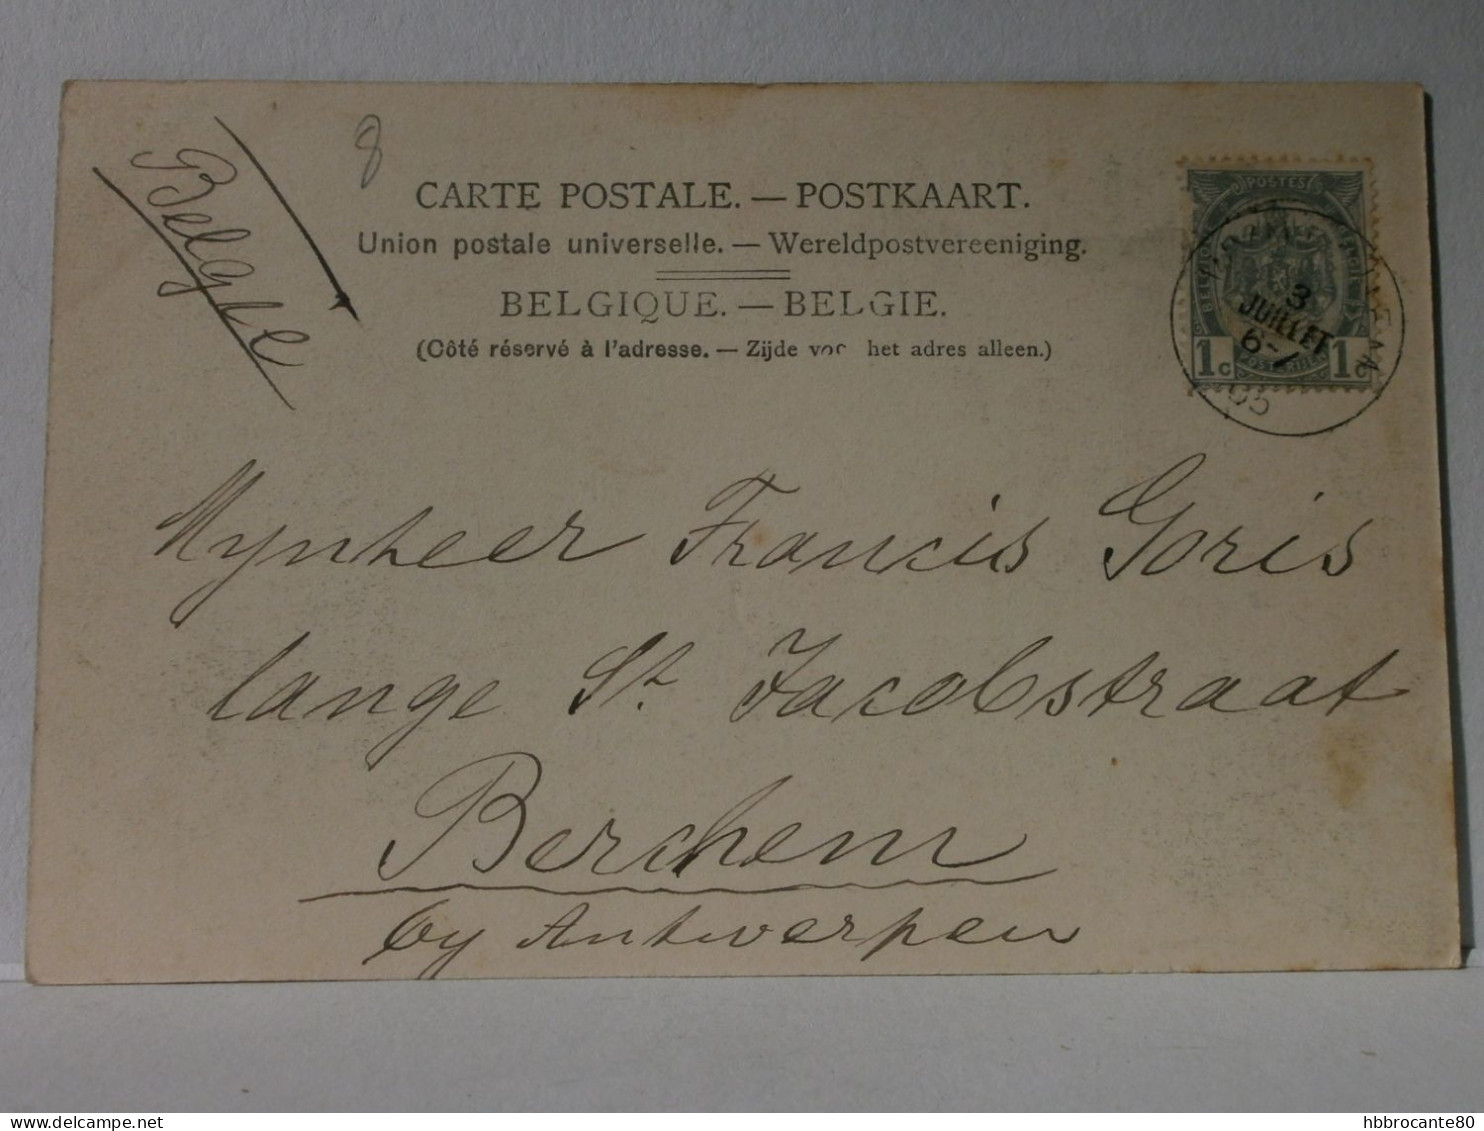 Belgie
8
CARTE POSTALE. — POSTKAART.
Union postale universelle. — Wereldpostvereeniging.
BELGIQUE. — BELGIE.
(Côté réservé à l'adresse. — Zijde voo het adres alleen.)
POSTES
3
JUILLET
6-
05
1c 1c
Mynheer Francis Goris
lange St. Jacobstraat
Berchem
by Antwerpen
delcampe.net
hbbrocante80